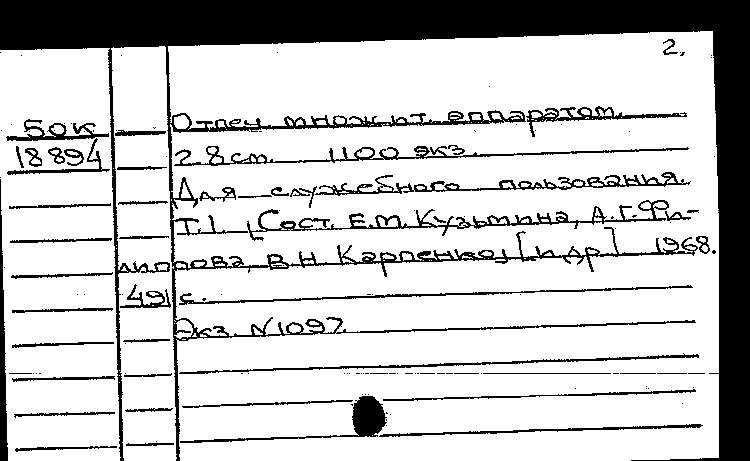 2.
50к Отпеч. множит. аппаратом.
18894 28 см. 1100 экз.
Для служебного пользования.
Т.1. [Сост. Е.М. Кузьмина, А.Г. Фи-
липпова, В.Н Карпенко, [и др] 1968.
491 с.
Экз. N1097.